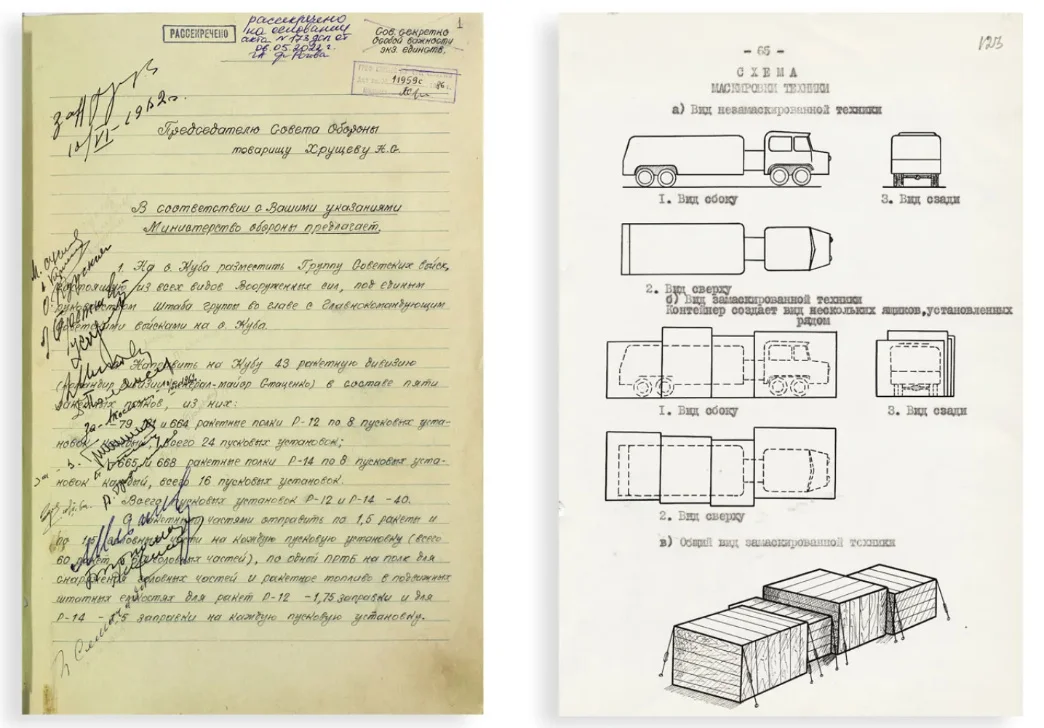 РАССЕКРЕЧЕНО
рассекречено
на основании
акта №
от
06.05.2022 г.
1
Сов. секретно
особой важности
экз. единств.
11959с
Председателю Совета Обороны
товарищу Хрущеву Н.С.
В соответствии с Вашими указаниями
Министерство обороны предлагает:
1. На о. Куба разместить Группу Советских войск,
состоящую из всех видов Вооруженных сил, под единым
руководством Штаба группы во главе с Главнокомандующим
Советскими войсками на о. Куба.
Направить на Кубу 43 ракетную дивизию
(командир дивизии генерал-майор Стаценко) в составе пяти
ракетных полков, из них:
79, и 664 ракетные полки Р-12 по 8 пусковых уста-
новок каждый, всего 24 пусковых установок;
665 и 668 ракетные полки Р-14 по 8 пусковых уста-
новок каждый, всего 16 пусковых установок.
Всего пусковых установок Р-12 и Р-14 -40.
С ракетными частями отправить по 1,5 ракеты и
по 1,5 головных части на каждую пусковую установку (всего
60 ракет, головных частей), по одной ПРТБ на полк для
снаряжения головных частей и ракетное топливо в подвижных
штатных емкостях для ракет Р-12 -1,75 заправки и для
Р-14 заправки на каждую пусковую установку.
- 65 -
123
СХЕМА
МАСКИРОВКИ ТЕХНИКИ
а) Вид незамаскированной техники
1. Вид сбоку
3. Вид сзади
2. Вид сверху
б) Вид замаскированной техники
Контейнер создает вид нескольких ящиков,установленных
рядом
1. Вид сбоку
3. Вид сзади
2. Вид сверху
в) Общий вид замаскированной техники